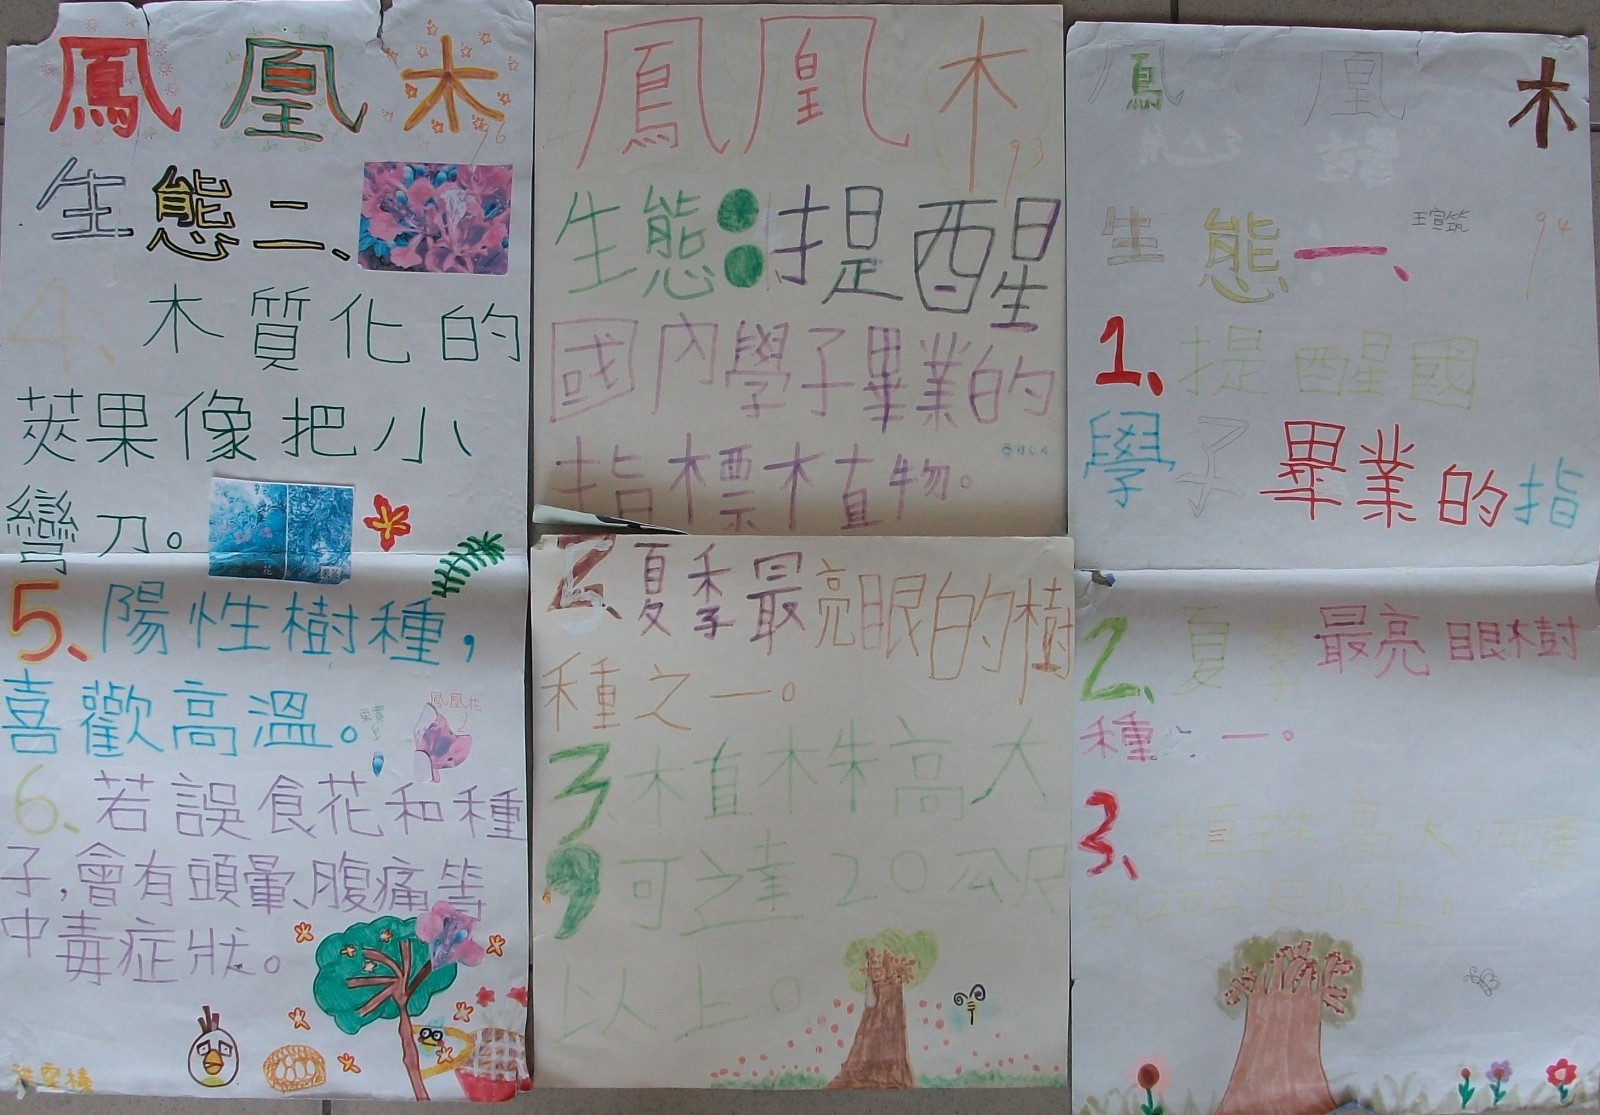 鳳凰木
96
生態二、
4、木質化的
莢果像把小
彎刀。
花
果莢
5、陽性樹種,
喜歡高溫。
鳳凰花
果實
6、若誤食花和種
子,會有頭暈、腹痛等
中毒症狀。
鳳凰木
93
生態:提醒
國內學子畢業的
指標植物。
2、夏季最亮眼的樹
種之一。
3、植株高大
,可達20公尺
以上。
鳳凰木
生態一、
王宣筑
94
1、提醒國
學子畢業的指
2、夏季最亮眼樹
種之一。
3、植珠高大,可達
到20公尺以上。